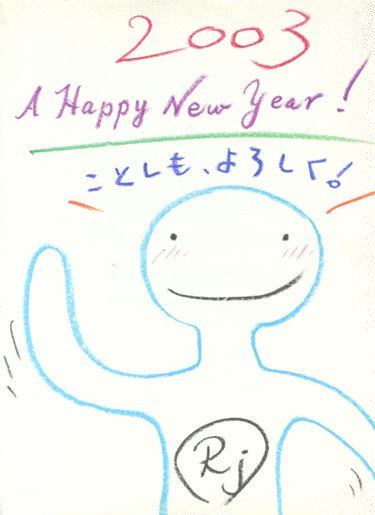 2003
A Happy New Year!
ことしも、よろしく!
Rj